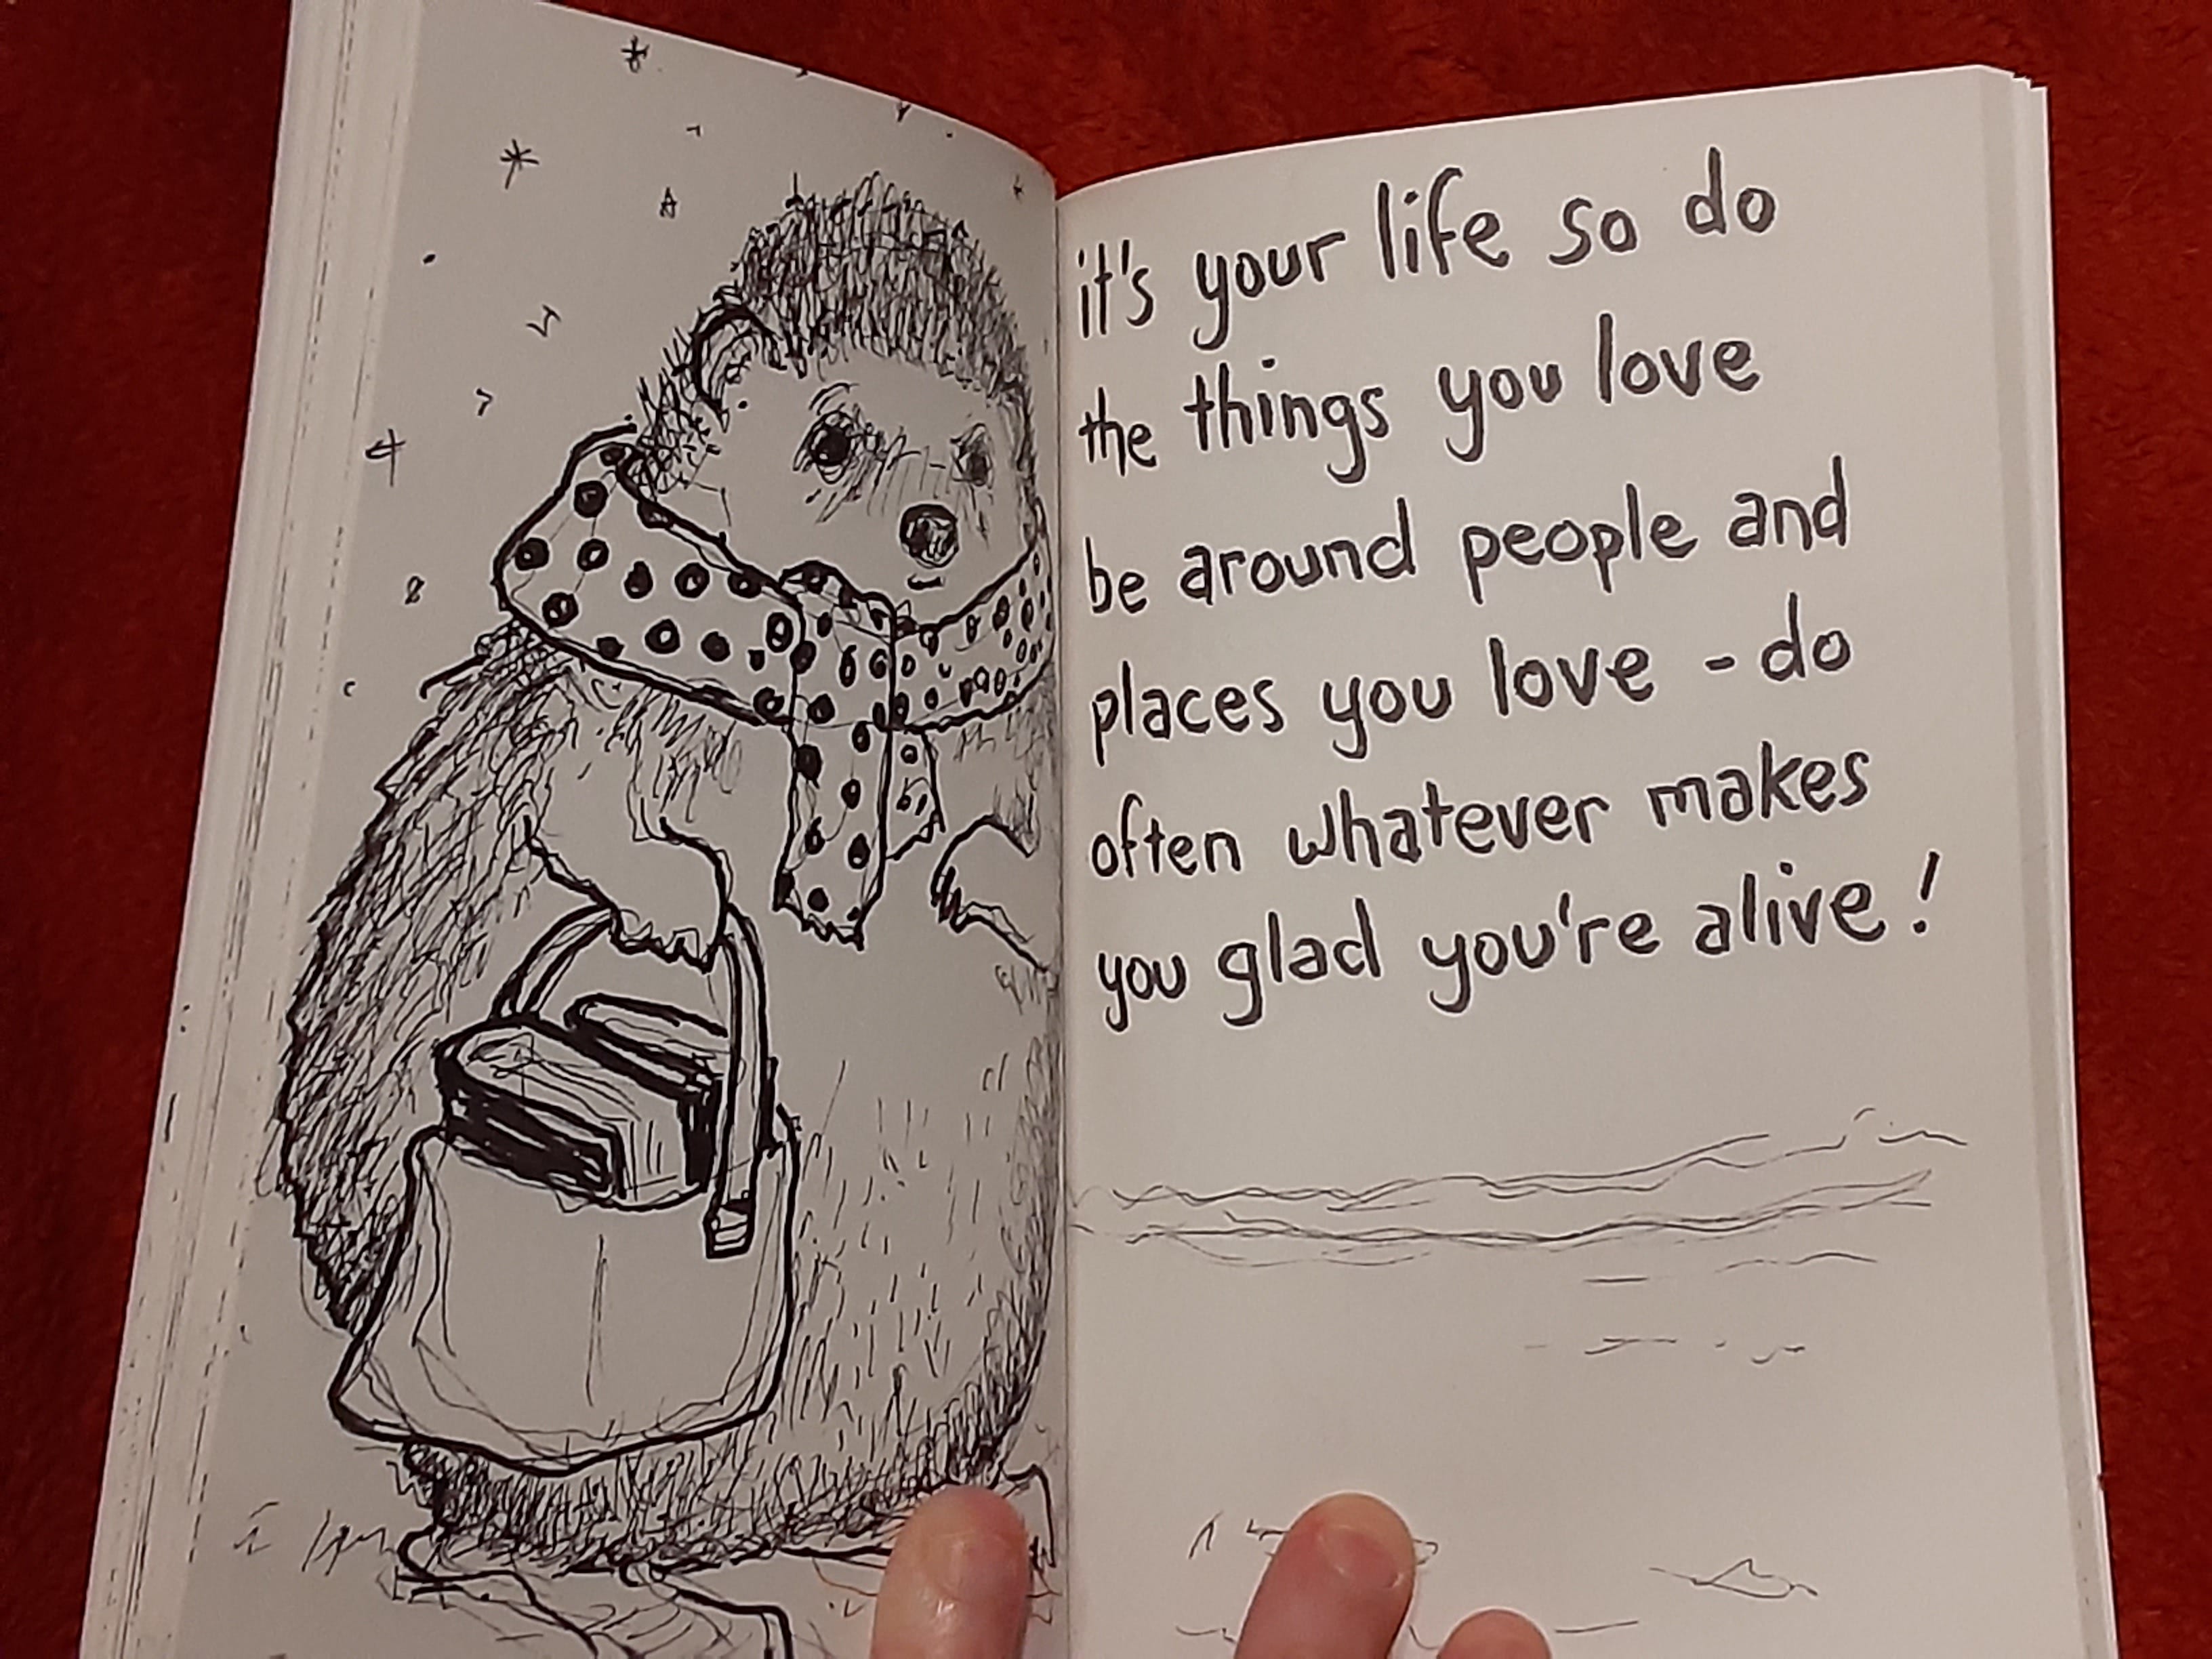 it's your life so do
the things you love
be around people and
places you love - do
often whatever makes
you glad you're alive!